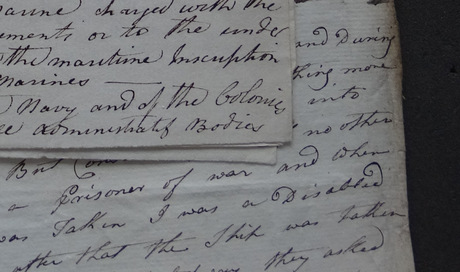 arine charged with the
ements or to the under
the maritime Inscription
Marines —
Navy and of the Colonies
Administratif Bodies
and During
thing more
into
no other
But
a Prisoner of war and when
was Taken I was a Disabled
after that the Ship was taken
they asked